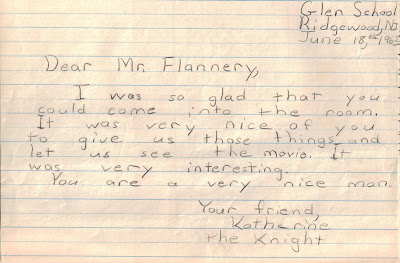 Glen School
Ridgewood, NJ
June 18,th 1963
Dear Mr. Flannery,
I was so glad that you
could come into the room.
It was very nice of you
to give us those things and
let us see the movie. It
was very interesting.
You are a very nice man.
Your friend,
Katherine
the Knight